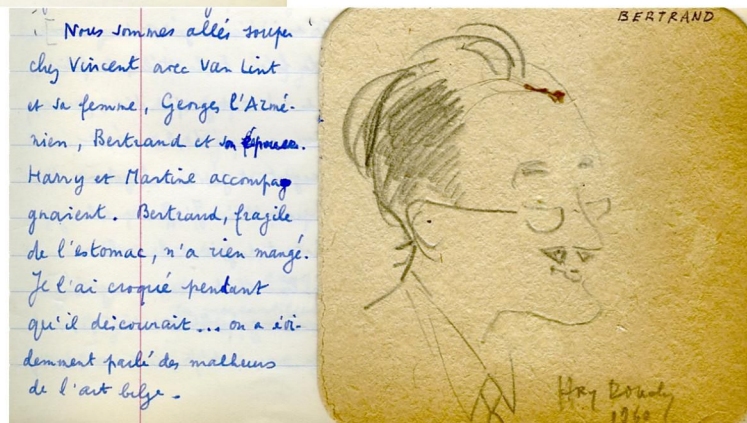 Nous sommes allés souper
chez Vincent avec Van Lint
et sa femme, Georges l'Armé-
nien, Bertrand et son épouse.
Harry et Martine accompag
gnaient. Bertrand, fragile
de l'estomac, n'a rien mangé.
Je l'ai croqué pendant
qu'il discourait... on a évi-
demment parlé des malheurs
de l'art belge.
BERTRAND
1960